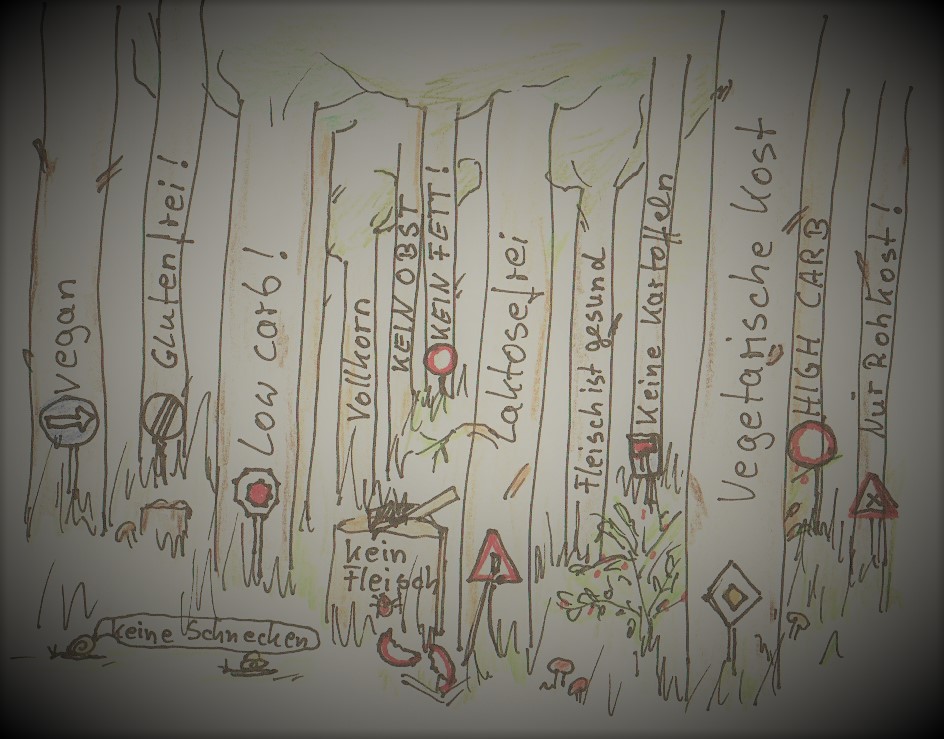 Vegan
Glutenfrei!
Low carb!
Vollkorn
KEIN OBST
KEIN FETT!
Laktosefrei
Fleisch ist gesund
Keine Kartoffeln
Vegetarische Kost
HIGH CARB
Nur Rohkost!
kein
Fleisch
keine Schnecken